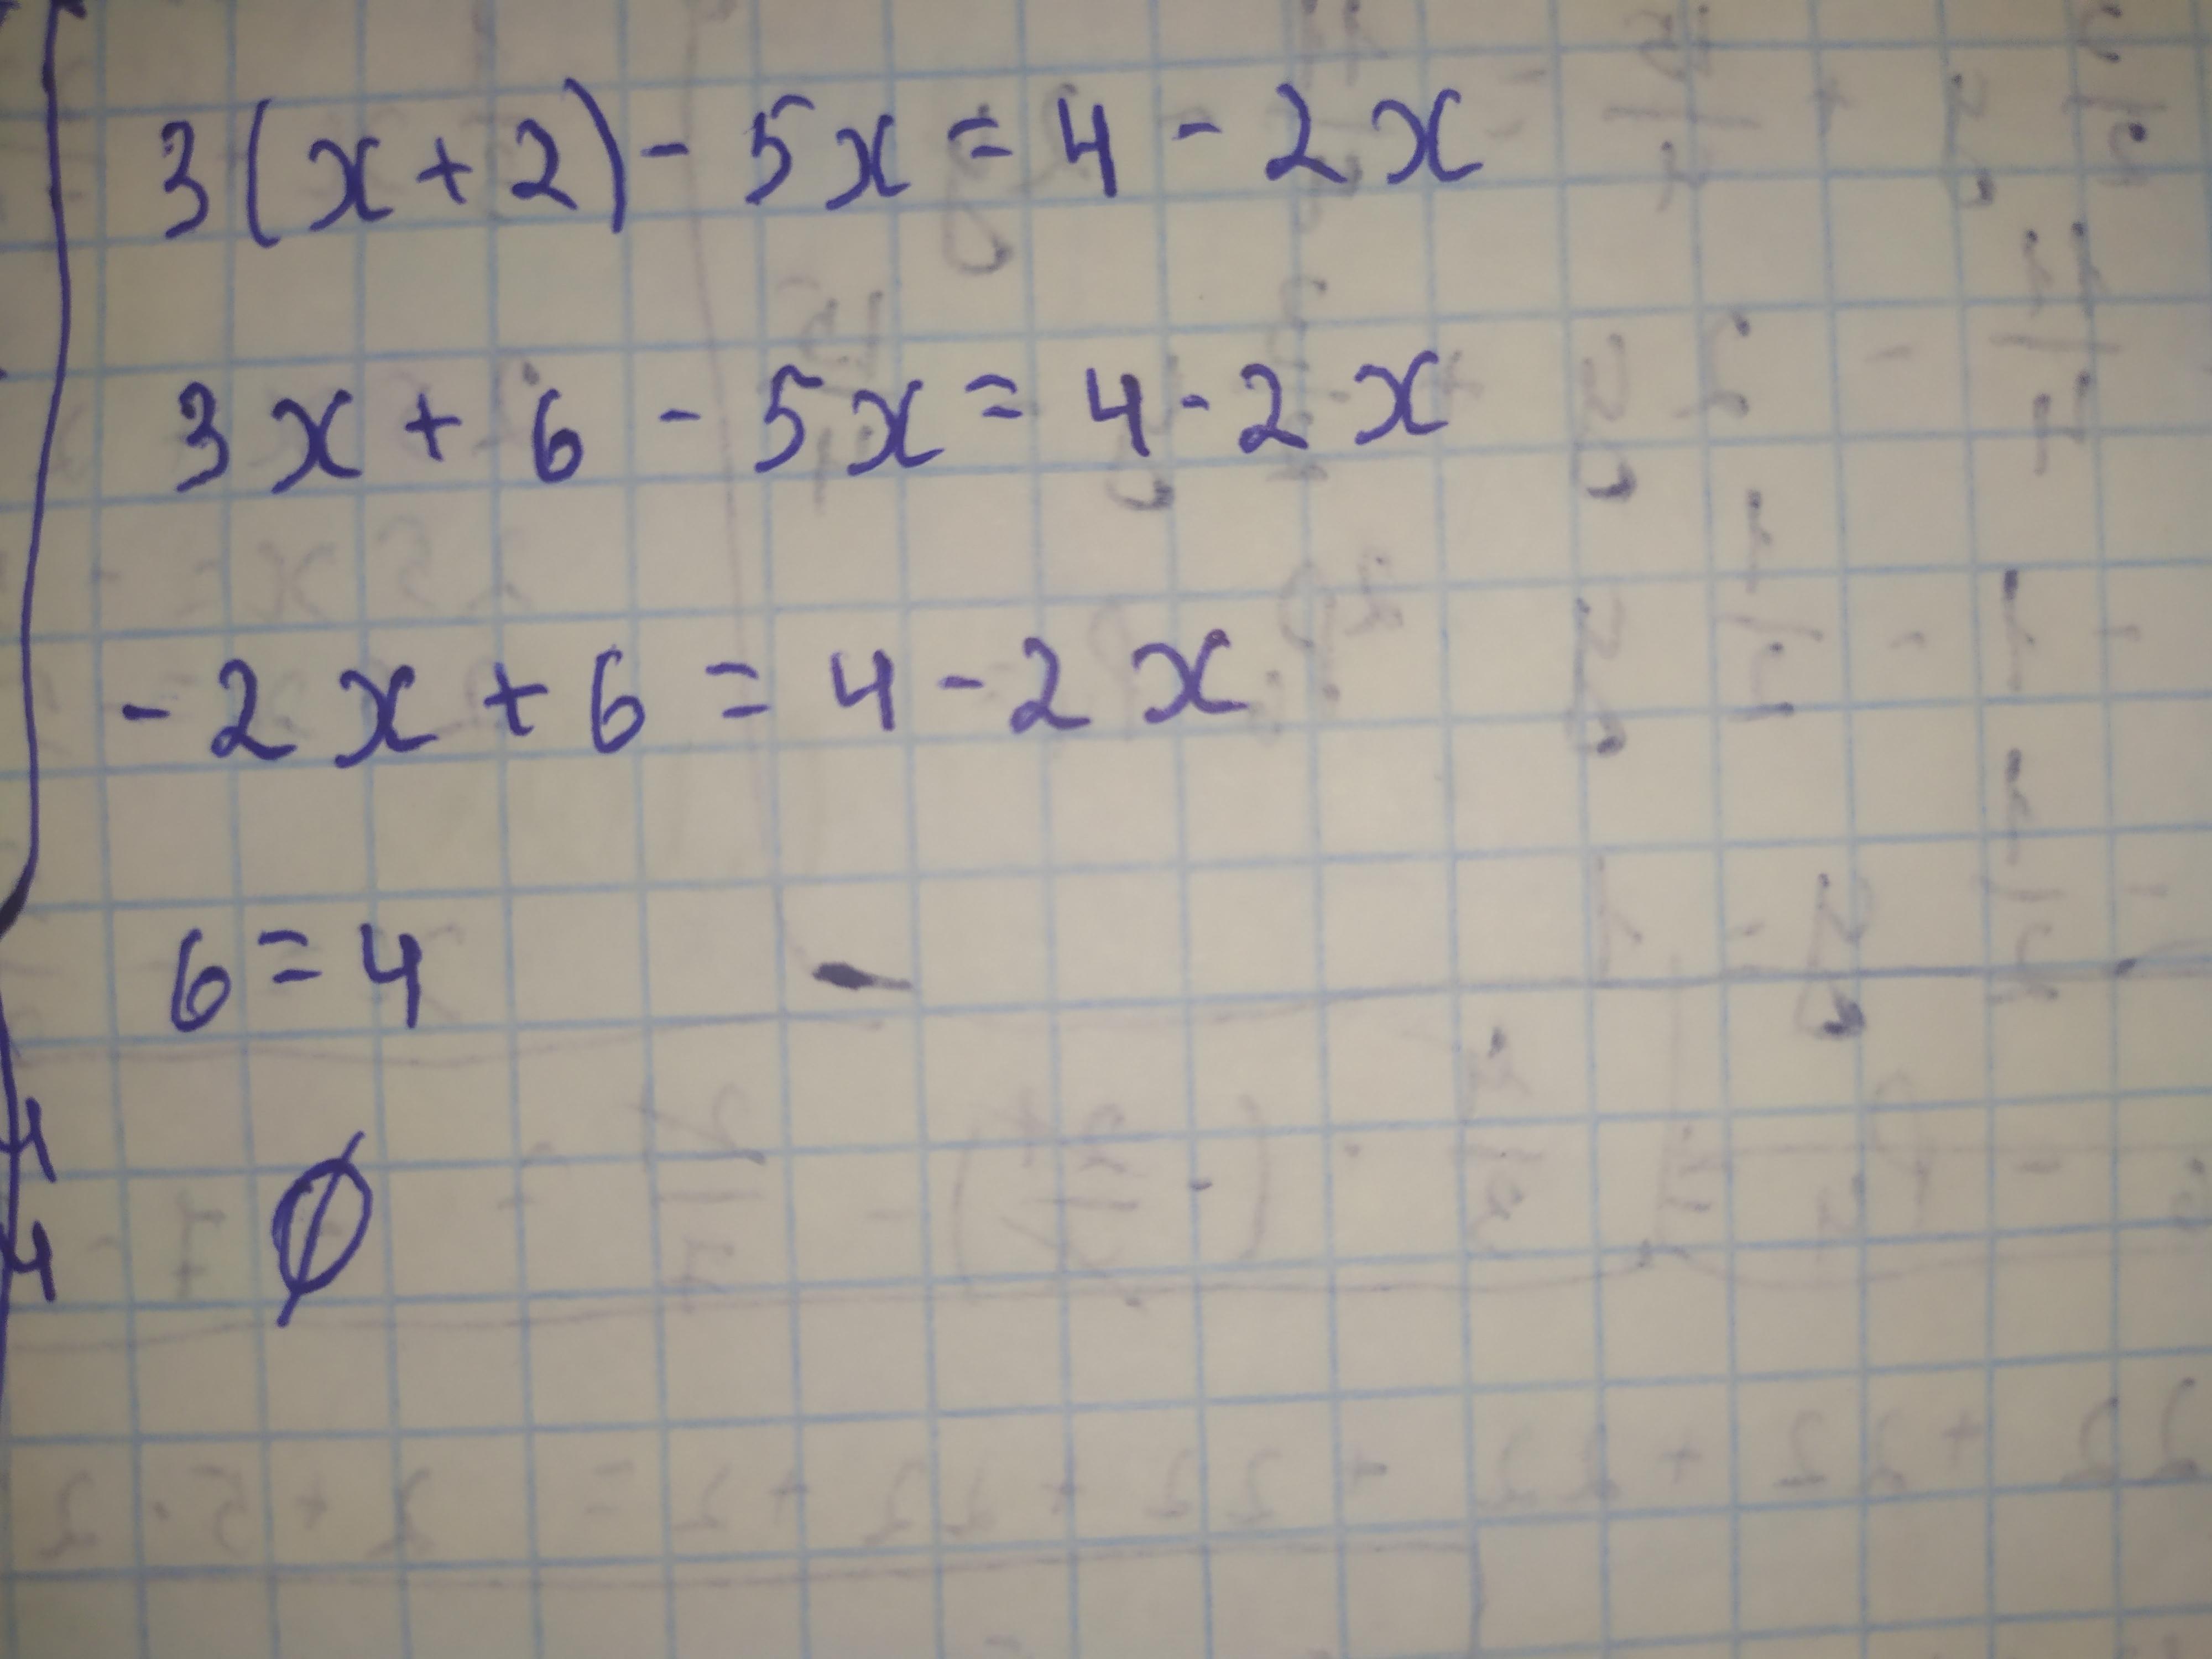 3(x+2)-5x=4-2x
3x+6-5x=4-2x
-2x+6=4-2x
6=4
4
∅
4